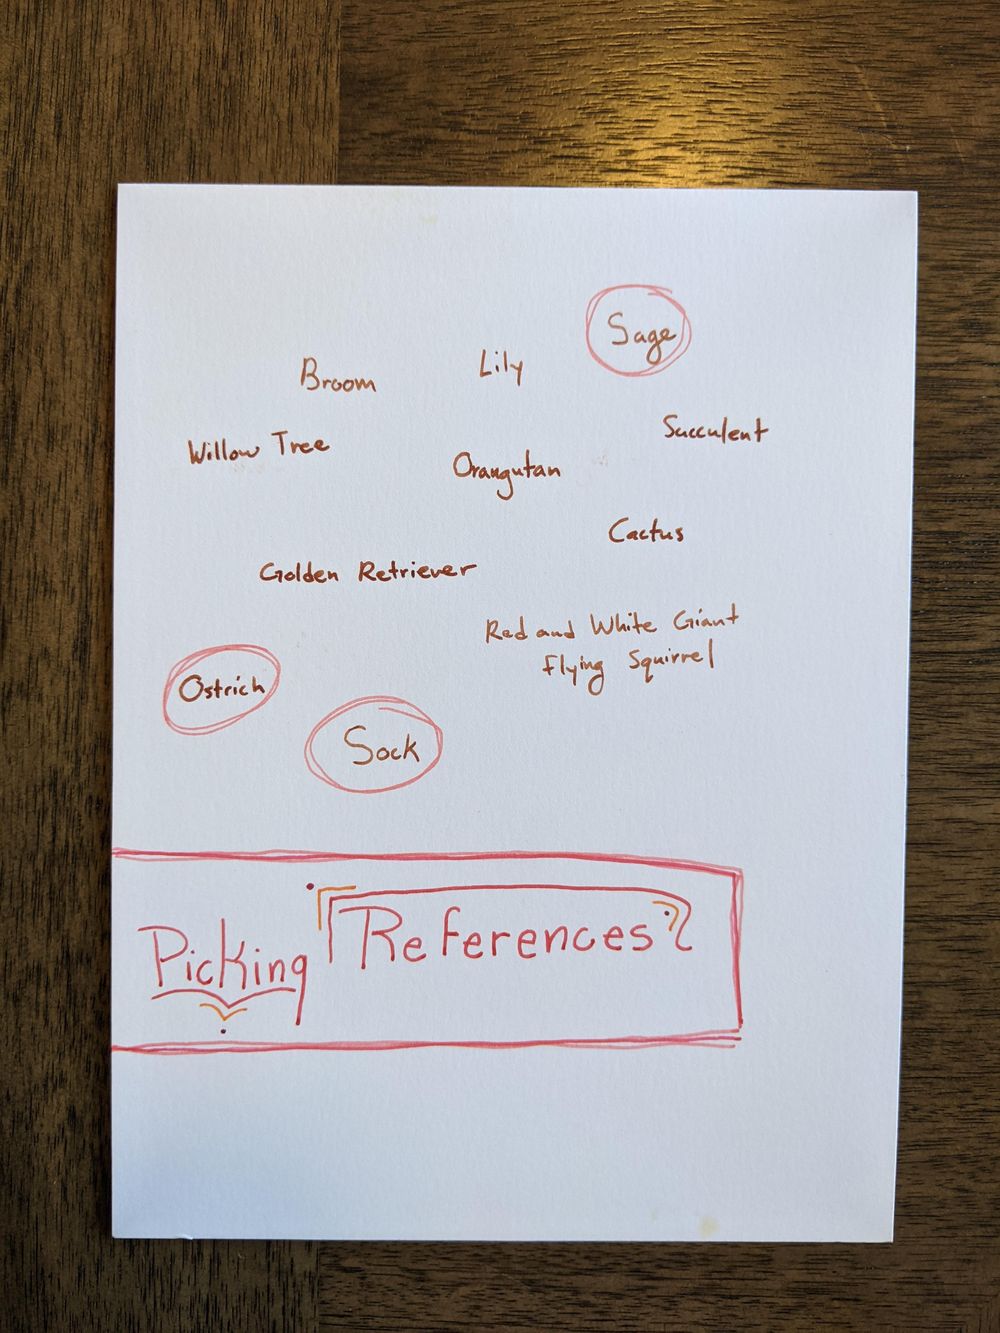 Sage
Broom
Lily
Succulent
Willow Tree
Orangutan
Cactus
Golden Retriever
Red and White Giant
Flying Squirrel
Ostrich
Sock
Picking
References